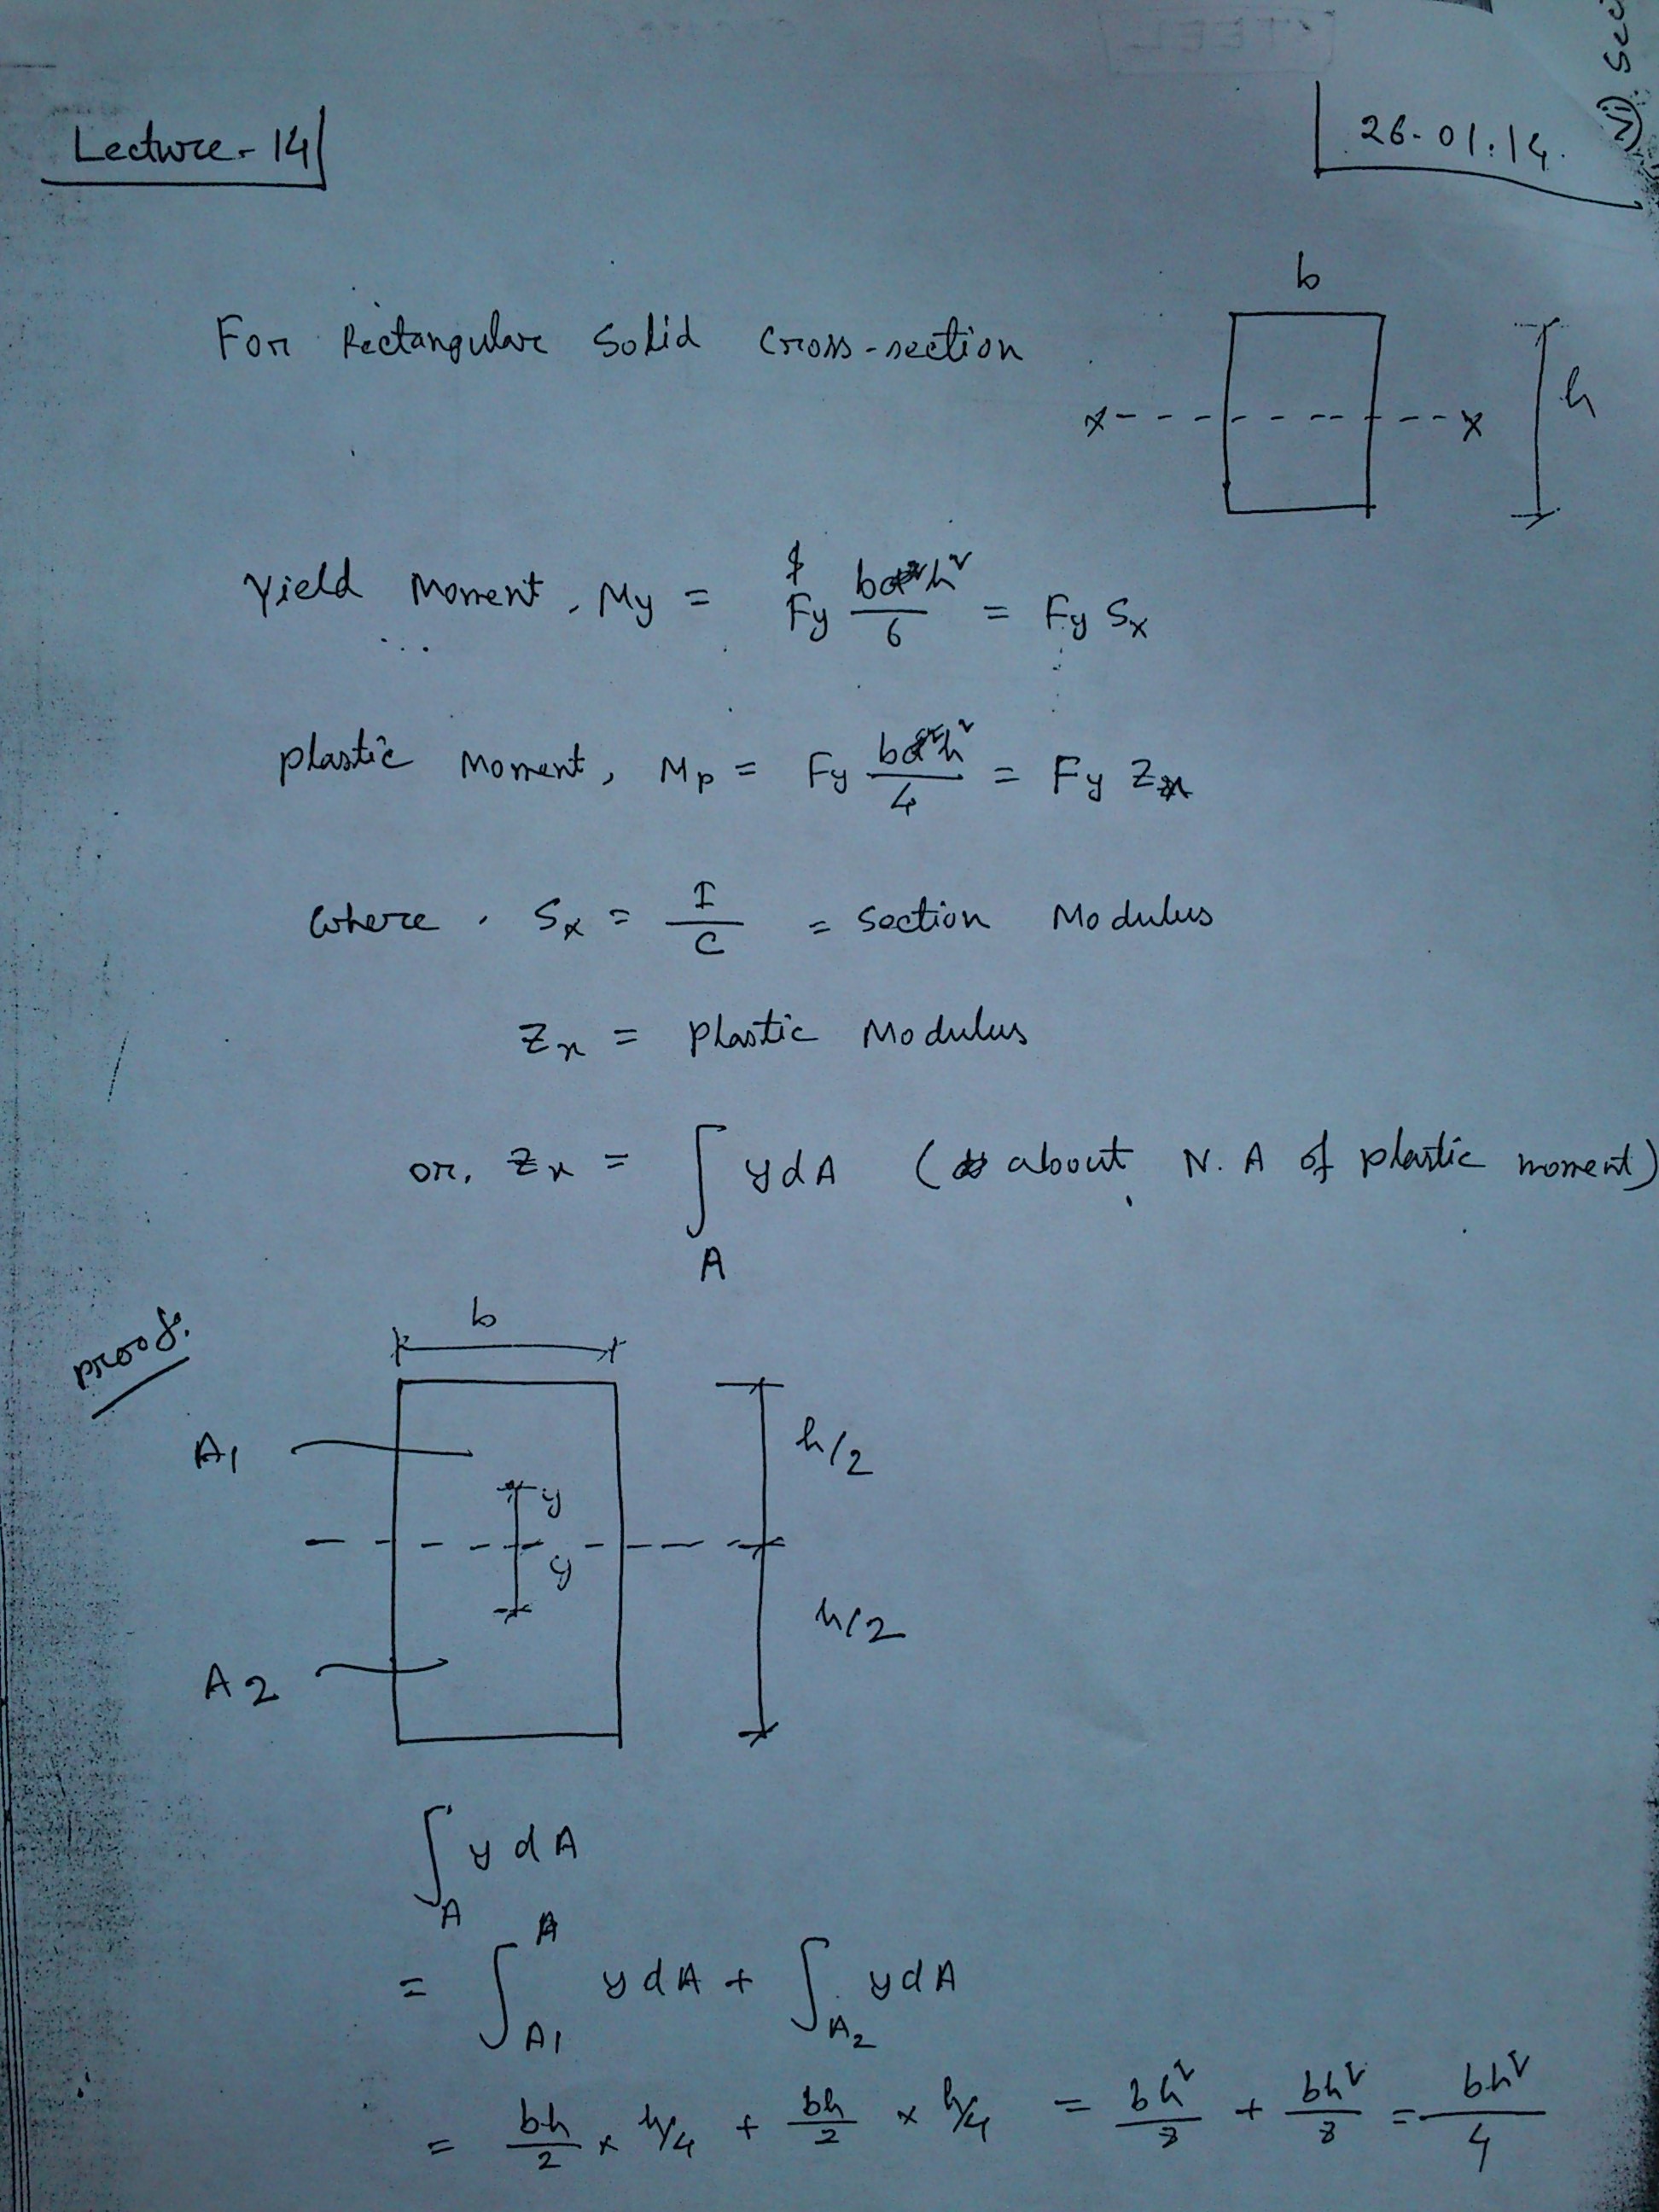 Lecture-14
26-01.14.
vi) Sec
b
For Rectangular Solid Cross-section
x x
h
Yield Moment, My = Fy bh²/6 = Fy Sx
plastic Moment, Mp = Fy bh²/4 = Fy Zx
Where, Sx = I/C = Section Modulus
Zx = plastic Modulus
or, Zx = ∫A y dA (about N.A of plastic moment)
proof.
b
A1
h/2
y
y
h/2
A2
∫A y dA
= ∫A1 y dA + ∫A2 y dA
= bh/2 × h/4 + bh/2 × h/4 = bh²/8 + bh²/8 = bh²/4